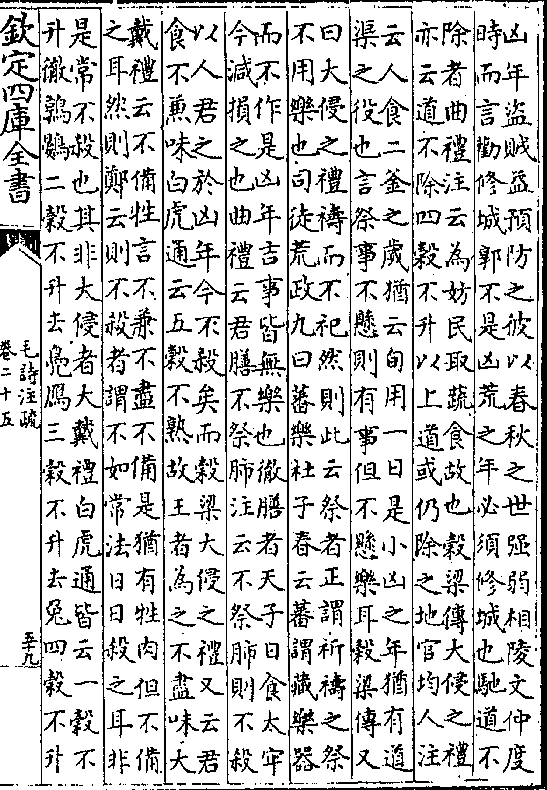 凶年盜賊益預防之彼以春秋之世强弱相陵文仲度
時而言勸修城郭不是凶荒之年必須修城也馳道不
除者曲禮注云為妨民取蔬食故也穀梁傳大侵之禮
亦云道不除四穀不升以上道或仍除之地官均人注
云人食二釜之歲猶云旬用一日是小凶之年猶有道
渠之役也言祭事不懸則有事但不懸樂耳穀梁傳又
曰大侵之禮禱而不祀然則此云祭者正謂祈禱之祭
不用樂也司徒荒政九曰蕃樂社子春云蕃謂藏樂器
而不作是凶年吉事皆無樂也徹膳者天子日食太牢
今減損之也曲禮云君膳不祭肺注云不祭肺則不殺
以人君之於凶年今不殺矣而穀梁大侵之禮又云君
食不蒹味白虎通云五穀不熟故王者為之不盡味大
戴禮云不備牲言不兼不盡不備是猶有牲肉但不備
之耳然則鄭云則不殺者謂不如常法日日殺之耳非
是常不殺也其非大侵者大戴禮白虎通皆云一穀不
升徹鶉鷃二穀不升去鳧鴈三穀不升去兔四穀不升
欽定四庫全書
毛詩注疏
卷二十五
五十九